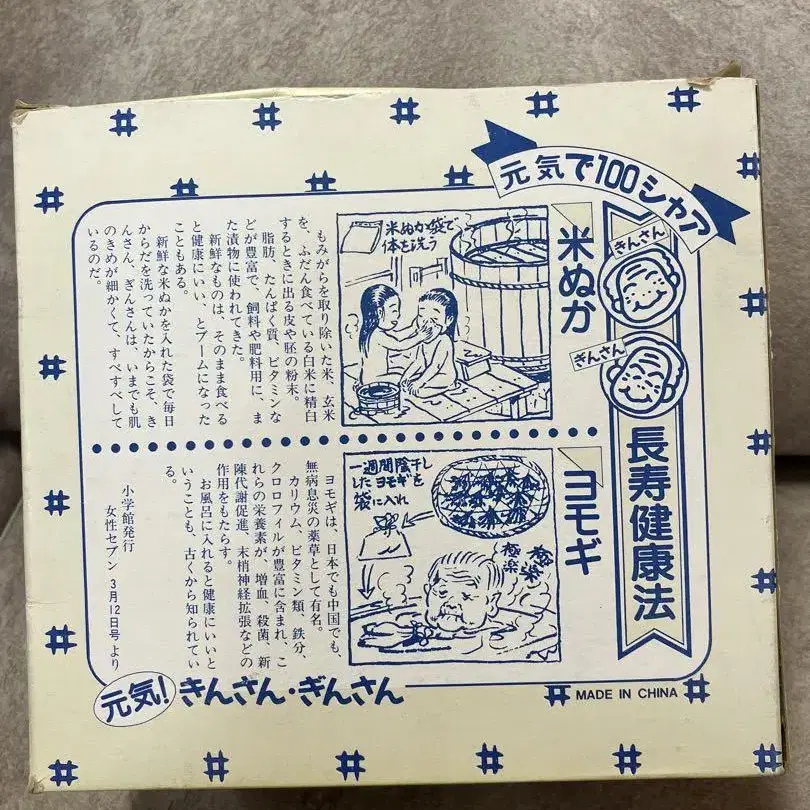 元気で100シャア
きんさん
ぎんさん
長寿健康法
米ぬか
米ぬか袋で
体を洗う
もみがらを取り除いた米、玄米
を、ふだん食べている白米に精白
するときに出る皮や胚の粉末。
脂肪、たんぱく質、ビタミンな
どが豊富で、飼料や肥料用に、ま
た漬物に使われてきた。
新鮮なものは、そのまま食べる
と健康にいい、とブームになった
こともある。
新鮮な米ぬかを入れた袋で毎日
からだを洗っていたからこそ、き
んさん、ぎんさんは、いまでも肌
のきめが細かくて、すべすべして
いるのだ。
ヨモギ
一週間陰干し
したヨモギを
袋に入れ
極楽
極楽
ヨモギは、日本でも中国でも、
無病息災の薬草として有名。
カリウム、ビタミン類、鉄分、
クロロフィルが豊富に含まれ、こ
れらの栄養素が、増血、殺菌、新
陳代謝促進、末梢神経拡張などの
作用をもたらす。
お風呂に入れると健康にいいと
いうことも、古くから知られてい
る。
小学館発行
女性セブン 3月12日号より
元気!きんさん・ぎんさん
MADE IN CHINA